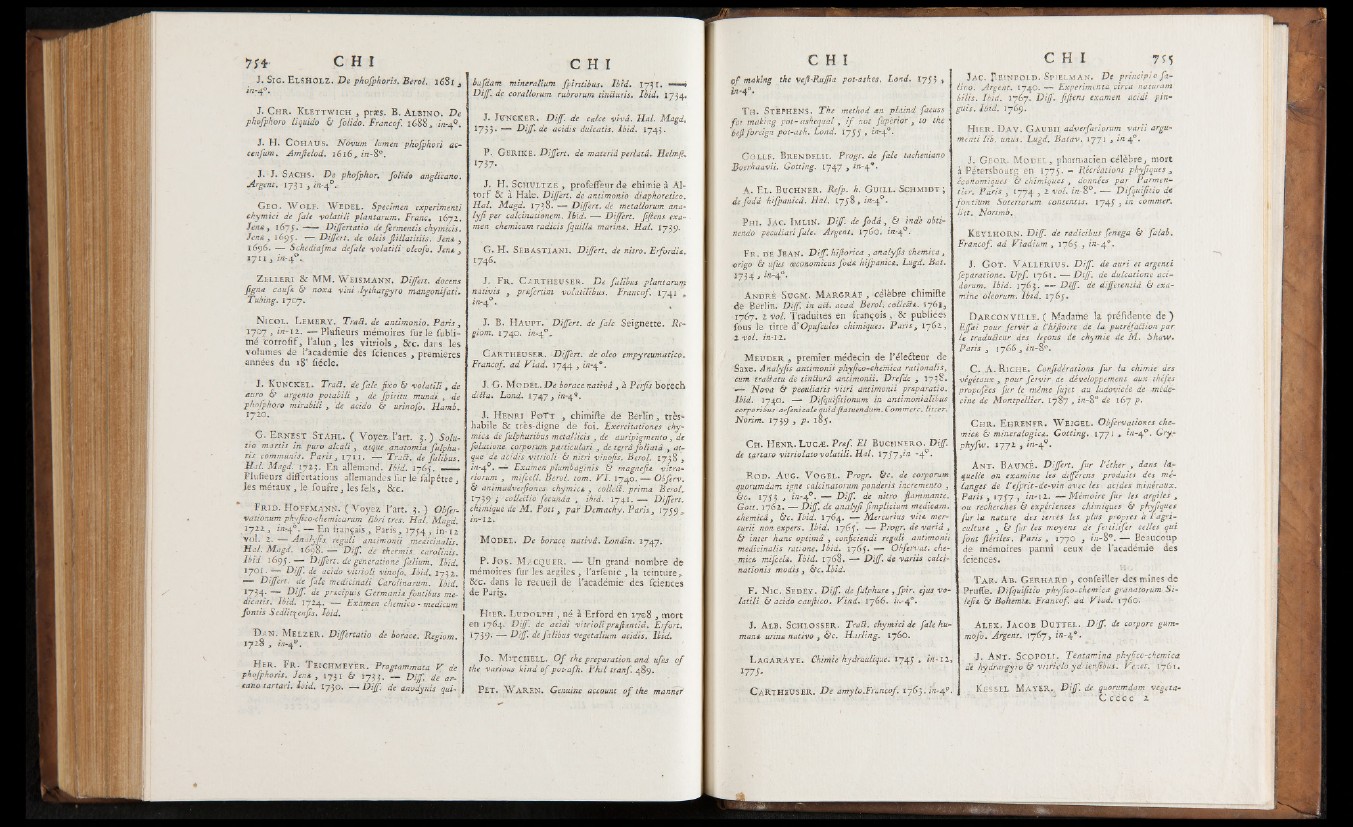 754 CHI
J. SIG. ELSHOLZ. De phoſphoris. Berol. 1681,
in-4°.
J. CHR. KLETTWICH, præs. B. ALBINO. De
phoſphoro liquido & ſolido. Francof. 1688, in-4°.
J. H. COHAUS. Novum lumen phoſphori ac-
cenſum. Amſtelod. 1616, in-8°.
J. J. SACHS. De phoſphor. ſolido anglicano.
Argent. 1731, in-4°.
GEO. WOLF. WEDEL. Specimen experimenti
chymici de ſale volatili plantarum. Franc. 1672.
Jenæ, 1675. — Diſſertatio de fermentis chymicis.
Jenæ, 1695. — Diſſert. de oleis ſtillatitiis. Jenæ,
1696. — Schediaſma deſale volatili oleoſo. Jenæ,
1711, in-4°.
ZELLERI & MM. WEISMANN. Diſſert. docens
ſigna cauſæ & noxa vini lythargyro mangoniſati.
Tubing. 1707.
NICOL. LEMERY. Tract. de antimonio. Paris,
1707, in-12. — Pluſieurs mémoires ſur le ſubli-
mé corroſif, l'alun, les vitriols, &c. dans les
volumes de l'académie des ſciences, premieres
années du 18e ſiécle.
J. KUNCKEL. Tract. de ſale fixo & volatili, de
auro & argento potabili, de ſpiritu mundi, de
phoſphoro mirabili, de acido & urinoſo. Hamb.
1720.
G. ERNEST STAHL. (Voyez l'art. 3.) Solu-
tio martis in puro alcali, atque anatomia ſulphu-
ris communis. Paris, 1711. — Tract. de ſalibus.
Hal. Magd. 1723. En allemand. Ibid. 1765. —
Pluſieurs diſſertations allemandes ſur le ſalpêtre,
les métaux, le ſoufre, les ſels, &c.
FRID. HOFFMANN. (Voyez l'art. 3.) Obſer-
vationum phyſico-chemicarum libri tres. Hal. Magd.
1722, in-4°. — En français, Paris, 1754, in-12
vol. 2. — Analyſis reguli antimonii medicinalis.
Hal. Magd. 1698. — Diff. de thermis carolinis.
Ibid 1695. — Diſſert. de generatione ſalium. Ibid.
1701. — Diff. de acido vitrioli vinoſo. Ibid. 1732.
— Diſſert. de ſale medicinali Carolinarum. Ibid.
1734. — Diff. de præcipuis Germaniæ fontibus me-
dicatis. Ibid. 1724. — Examen chemico-medicum
fontis Sedlitzenſis. Ibid.
DAN. MELZER. Diſſertatio de borace. Regiom.
1728, in-4°.
HER. FR. TEICHMEYER. Programmata V de
phoſphoris. Jenæ, 1731 & 1733. — Diff. de ar-
cano tartari. Ibid. 1730. — Diff. de anodynis qui-
CHI
buſdam mineralium ſpiritibus. Ibid. 1731. —
Diff. de corallorum rubrorum tincturis. Ibid. 1734.
J. JUNCKER. Diff. de calce vivâ. Hal. Magd.
1733. — Diff. de acidis dulcatis. Ibid. 1743.
P. GERIKE. Diſſert. de materiâ perlatâ. Helmſt.
1737.
J. H. SCHULTZE, profeſſeur de chimie à Al-
torf & à Hale. Diſſert. de antimonio diaphoretico.
Hal. Magd. 1738. — Diſſert. de metallorum ana-
lyſi per calcinationem. Ibid. — Diſſert. ſiſtens exa-
men chemicum radicis ſquillæ marinæ. Hal. 1739.
G. H. SEBASTIANI. Diſſert. de nitro. Erfordiæ.
1746.
J. FR. CARTHEUSER. De ſalibus plantarum
nativis, præſertim volatilibus. Francof. 1741,
in-4°.
J. B. HAUPT. Diſſert. de ſale Seignette. Re-
giom. 1740. in-4°.
CARTHEUSER. Diſſert. de oleo empyreumatico.
Francof. ad Viad. 1744, in-4°.
J. G. MODEL. De borace nativâ, à Perſis borech
dicta. Lond. 1747, in-4°.
J. HENRI POTT, chimiſte de Berlin, très-
habile & très-digne de foi. Exercitationes chy-
micæ de ſulphuribus metallicis, de auripigmento, de
ſolutione corporum particulari, de terrâ foliatâ, at-
que de acidis vitrioli & nitri vinoſis. Berol. 1738,
in-4°. — Examen plumbaginis & magneſiæ vitra-
riorum, miſcell. Berol. tom. VI. 1740. — Obſerv.
& animadverſiones chymicæ, collect. prima Berol.
1739; collectio ſecunda, ibid. 1741. — Diſſert.
chimique de M. Pott, par Demachy. Paris, 1759,
in-12.
MODEL. De borace nativâ. Londin. 1747.
P. JOS. MACQUER. — Un grand nombre de
mémoires ſur les argiles, l'arſenic, la teinture,
&c. dans le recueil de l'académie des ſciences
de Paris.
HIER. LUDOLPH, né à Erford en 1708, mort
en 1764. Diff. de acidi vitrioli præſtantiâ. Erfurt.
1739. — Diff. de ſalibus vegetalium acidis. Ibid.
JO. MITCHELL. Of the preparation and uſes of
the various kind of pot-aſh. Phil tranſ. 489.
PET. WAREN. Genuine account of the manner
CHI
of making the beſt-Ruſſia pot-ashes. Lond. 1753,
in-4°.
TH. STEPHENS. The method an plaind facuss
for making pot-ashequal, if not ſuperior, to the
beſt foreign pot-ash. Lond. 1755, in-4°.
COLLF. BRENDELII. Progr. de ſale tacheniano
Boerhaavii. Gotting. 1747, in-4°.
A. EL. BUCHNER. Reſp. h. GUILL. SCHMIDT;
de ſodâ hiſpanicâ. Hal. 1758, in-4°.
PHI. JAC. IMLIN. Diff. de ſodâ, & indè obti-
nendo peculiari ſale. Argent. 1760. in-4°.
FR. DE JEAN. Diff. hiſtorica, analyſis chemica,
origo & uſus œconomicus ſodæ hiſpanicæ. Lugd. Bat.
1734, in-4°.
ANDRÉ SUGM. MARGRAF, célèbre chimiſte
de Berlin. Diff. in act. acad Berol. collectæ. 1761,
1767. 2 vol. Traduites en françois, & publiées
ſous le titre d'Opuſcules chimiques. Paris, 1762,
2 vol. in-12.
MEUDER, premier médecin de l'électeur de
Saxe. Analyſis antimonii phyſico-chemica rationalis,
cum tractatu de tincturâ antimonii. Dreſdæ, 1738.
— Nova & peculiaris vitri antimonii præparatio.
Ibid. 1740. — Diſquiſitionum in antimonialibus
corporibus arſenicale quid ſtatuendum. Commerc. litter.
Norim. 1739, p. 185.
CH. HENR. LUCÆ. Præſ. El BUCHNERO. Diff.
de tartaro vitriolato volatili. Hal. 1757, in-4°.
ROD. AUG. VOGEL. Progr. &c. de corporum
quorumdam igne calcinatorum ponderis incremento,
&c. 1753, in-4°. — Diff. de nitro flammante.
Gott. 1762. — Diff. de analyſi ſimplicium medicam.
chemicâ, &c. Ibid. 1764. — Mercurius vitæ mer-
curii non expers. Ibid. 1765. — Progr. de variâ,
& inter hanc optimâ, conficiendi reguli antimonii
medicinalis ratione. Ibid. 1765. — Obſervat. che-
micæ miſcelæ. Ibid. 1768. — Diff. de variis calci-
nationis modis, &c. Ibid.
F. NIC. SEDEY. Diff. de ſulphure, ſpir. ejus vo-
latili & acido cauſtico. Vind. 1766. in-4°.
J. ALB. SCHLOSSER. Tract. chymici de ſale hu-
manæ urinæ nativo, &c. Harling. 1760.
LAGARAYE. Chimie hydraulique. 1745, in-12,
1775.
CARTHEUSER. De amylo. Francof. 1763. in-4°.
CHI 755
JAC. REINPOLD. SPIELMAN. De principio ſa-
lino. Argent. 1740. — Experimenta circa naturam
bilis. Ibid. 1767. Diff. ſiſtens examen acidi pin-
guis. Ibid. 1769.
HIER. DAV. GAUBII adverſariorum varii argu-
menti lib. unus. Lugd. Batav. 1771, in-4°.
J. GEOR. MODEL, pharmacien célèbre, mort
à Pétersbourg en 1775. - Récréations phyſiques,
économiques & chimiques, données par Parmen-
tier. Paris, 1774, 2 vol. in 8°. — Diſquiſitio de
fontium Soteriorum contentis. 1745, in commer.
litt. Norimb.
KEYLHORN. Diff. de radicibus ſenega & ſalab.
Francof. ad Viadium, 1765, in-4°.
J. GOT. VALLERIUS. Diff. de auri et argenti
ſeparatione. Upſ. 1761. — Diff. de dulcatione aci-
dorum. Ibid. 1763. — Diff. de differentiâ & exa-
mine oleorum. Ibid. 1765.
DARCONVILLE. (Madame la préſidente de)
Eſſai pour ſervir à l'hiſtoire de la putréfaction par
le traducteur des leçons de chymie de M. Shaw.
Paris, 1766, in-8°.
C. A. RICHE. Conſidérations ſur la chimie des
végétaux, pour ſervir de développement aux thèſes
propoſées ſur le même ſujet au ludovicée de méde-
cine de Montpellier. 1787, in-8° de 167 p.
CHR. EHRENER. WEIGEL. Obſervationes che-
micæ & mineralogicæ. Gotting. 1771, in-4°. Gry-
phyſw. 1772, in-4°.
ANT. BAUMÉ. Diſſert. ſur l'éther, dans la-
quelle on examine les différens produits des mé-
langes de l'eſprit-de-vin avec les acides minéraux.
Paris, 1757, in-12. — Mémoire ſur les argiles,
ou recherches & expériences chimiques & phyſiques
ſur la nature des terres les plus propres à l'agri-
culture, & ſur les moyens de fertiliſer celles qui
ſont ſtériles. Paris, 1770, in-8°. — Beaucoup
de mémoires parmi ceux de l'académie des
ſciences.
TAR. AB. GERHARD, conſeiller des mines de
Pruſſe. Diſquiſitio phyſico-chemica granatorum Si-
leſiæ & Bohemiæ. Francof. ad Viad. 1760.
ALEX. JACOB DUTTEL. Diff. de corpore gum-
moſo. Argent. 1767, in-4°.
J. ANT. SCOPOLI. Tentamina phyſico-chemica
de hydrargyro & vitriolo ydrienſibus. Venet. 1761.
KESSEL MAYER. Diff. de quorumdam vegeta-
Ccccc 2